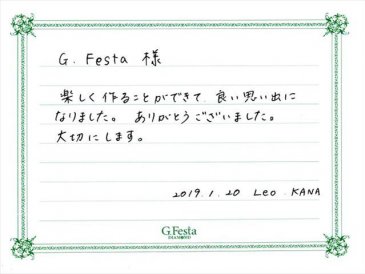 G. Festa 様
楽しく作ることができて 良い思い出に
なりました。ありがとうございました。
大切にします。
2019.1.20 Leo. KANA
G.Festa
DIAMOND